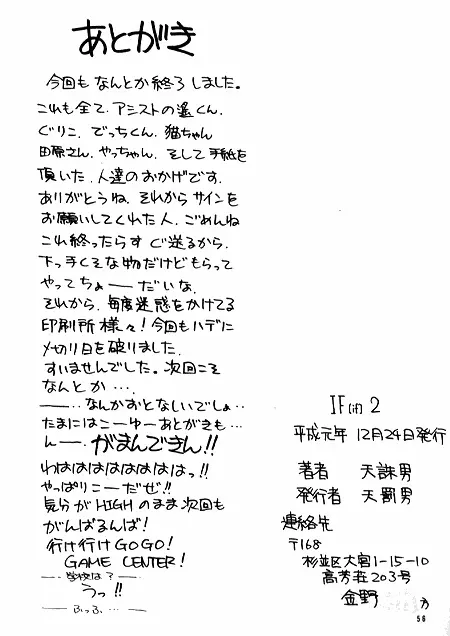 あとがき
今回も なんとか終了しました。
これも全て、アシストの遙くん、
ぐりこ、でっちくん、猫ちゃん
田原さん、やっちゃん、そして手紙を
頂いた、人達のおかげです。
ありがとうね、それからサインを
お願いしてくれた人、ごめんね
これ終ったらすぐ送るから、
下っ手くそな物だけどもらって
やってちょーーだいな、
それから、毎度迷惑をかけてる
印刷所様々!今回もハデに
〆切り日を破りました、
すいませんでした。次回こそ
なんとか…、
――‥なんかおとなしいでしょ‥
たまにはこーゆーあとがきも…
んー、がまんできん!!
わはははははははっ!!
やっぱりこーだぜ!!
気分がHIGHのまま次回も
がんばるんば!
行け行けGOGO!
GAME CENTER!
――学校は?――
うっ!!
――ふっふ…――
IF(if)2
平成元年 12月24日発行
著者 天誅男
発行者 天罰男
連絡先
〒168
杉並区大宮1-15-10
高芳荘203号
金野 方
56